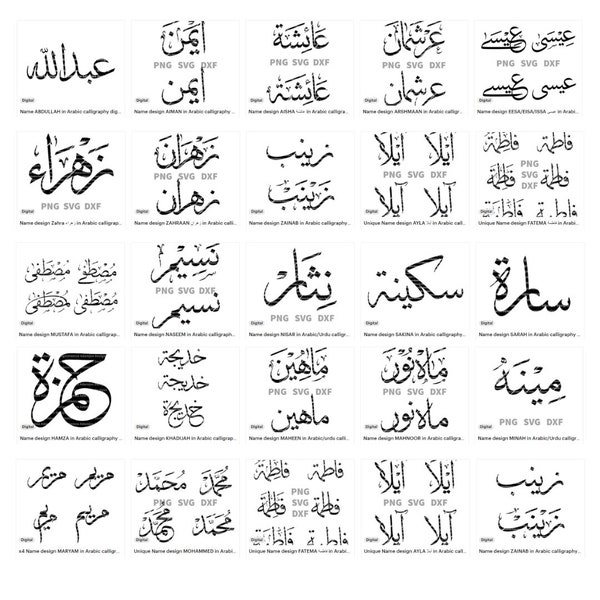 عبدالله
Digital
Name ABDULLAH in Arabic calligraphy dig...
أيمن
PNG SVG DXF
أيمن
Digital
Name design AIMAN in Arabic calligraphy ...
عائشة
PNG SVG DXF
عائشة
Digital
Name design AISHA عائشة in Arabic calligra...
عرشمان
PNG SVG DXF
عرشمان
Digital
Name design ARSHMAAN in Arabic calligr...
عيسى عيسى
PNG SVG DXF
عيسى عيسى
Digital
Name design EESA/EISA/ISSA عيسى in Arabi...
زهراء
PNG SVG DXF
Digital
Name design Zahra زهراء in Arabic calligrap...
زهران
PNG SVG DXF
زهران
Digital
Name design ZAHRAAN زهران in Arabic calli...
زينب
زينب
Digital
Name design ZAINAB in Arabic calligraphy...
آيلا آيلا
PNG SVG DXF
آيلا آيلا
Digital
Unique Name design AYLA آيلا in Arabic call...
فاطمة فاطمة
PNG
فاطمة SVG فاطمة
DXF
فاطمة فاطمة
Digital
Unique Name design FATEMA فاطمة in Arabi...
مصطفى مصطفى
مصطفى مصطفى
Digital
Name design MUSTAFA in Arabic calligrap...
نسيم
PNG SVG DXF
نسيم
Digital
Name design NASEEM in Arabic calligraphy...
نثار
PNG SVG DXF
Digital
Name design NISAR in Arabic/Urdu calligr...
سكينة
Digital
Name design SAKINA in Arabic calligraphy...
سارة
Digital
Name design SARAH in Arabic calligraphy...
حمزة
Digital
Name design HAMZA in Arabic calligraphy ...
خديجة
خديجة
خديجة
Digital
Name design KHADIJAH in Arabic calligrap...
ماهين
PNG SVG DXF
ماهين
Digital
Name design MAHEEN in Arabic/urdu calli...
ماہ نور
PNG SVG DXF
ماہ نور
Digital
Name design MAHNOOR in Arabic calligra...
مينه
PNG SVG DXF
Digital
Name design MINAH in Arabic/Urdu calligr...
مريم مريم
مريم مريم
Digital
x4 Name design MARYAM in Arabic calligr...
محمد محمد
PNG SVG DXF
محمد محمد
Digital
Unique Name design MOHAMMED in Arabi...
فاطمة فاطمة
PNG
فاطمة SVG فاطمة
DXF
فاطمة فاطمة
Digital
Unique Name design FATEMA فاطمة in Arabi...
آيلا آيلا
PNG SVG DXF
آيلا آيلا
Digital
Unique Name design AYLA آيلا in Arabic call...
زينب
زينب
Digital
Name design ZAINAB in Arabic calligraphy...